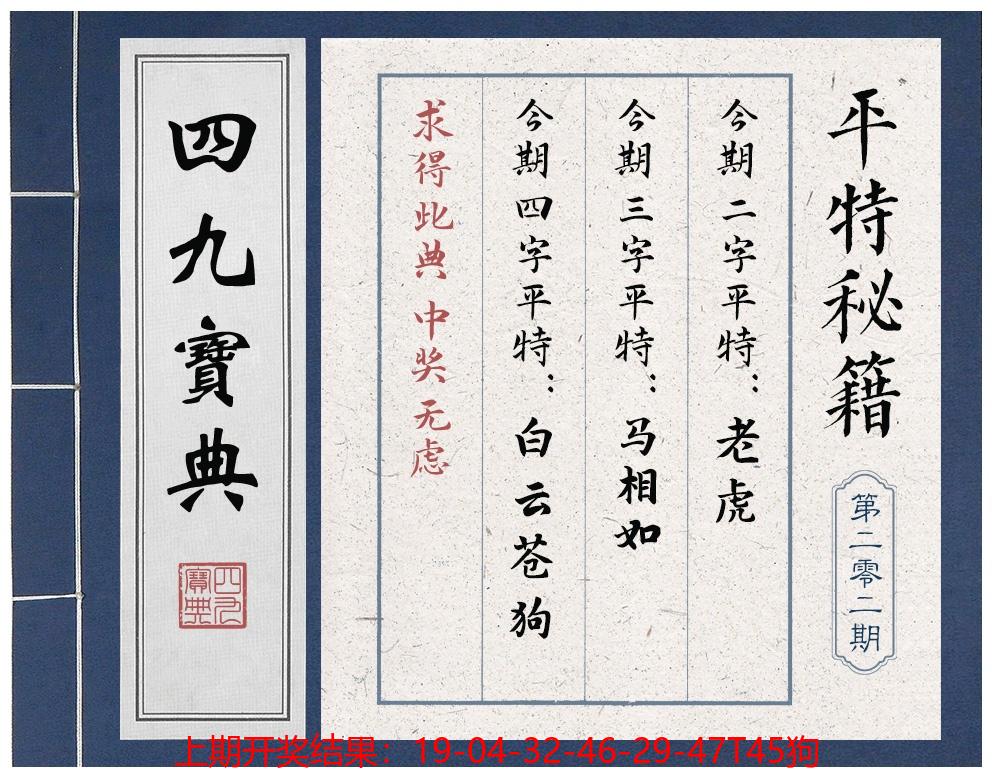 平特秘籍
第二零二期
今期二字平特：老虎
今期三字平特：马相如
今期四字平特：白云苍狗
求得此典 中奖无虑
四九寶典
四九寶典
上期开奖结果：19-04-32-46-29-47T45狗